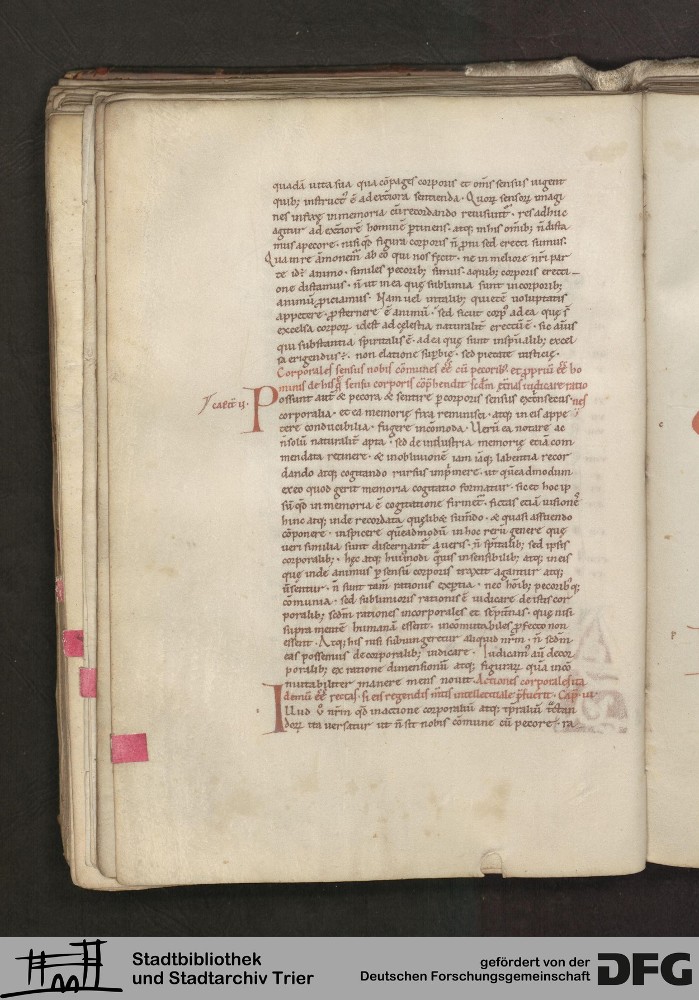 quadā uita sua qua cōpages corporis et om̄is sensus uigent
quib; instruct᾽ ē ad exteriora sentienda. Quoꝝ sensoꝝ imagi
nes infixę in memoria cū recordando reuisunt᾽. res adhuc
agitur ad exteriorē hominē ꝑtinens. atq; in his om̄ib; n̄ dista
mus a pecore. nisi qđ figura corporis n̄ proni sed erecti sumus.
Qua in re āmonem᾽ ab eo qui nos fecit. ne in meliore nr̄i par
te id ē animo. similes pecorib; simus. a quib; corporis erecti
one distamus. n̄ ut in ea quę sublimia sunt in corporib;
animū ꝓiciamus. Nam uel in talib; quietē uoluptatis
appetere. ꝓsternere ē animū. sed sicut corp᾽ ad ea quę s̄
excelsa corpoꝝ idest ad cęlestia naturalit̄ erectū ē. sic anim᾽
qui substantia spiritalis ē. ad ea quę sunt in spiritalib; excel
sa erigendus ē. non elatione supbię. sed pietate iusticię.
Corporales sensus nobis cōmunes eē cū pecorib᾽ et ꝓpriū eē ho
minis de his quę sensu corporis cōphendit sc̄dm ęt̄nas iudicare ratio
nes
Possunt aut̄ & pecora & sentire ꝑ corporis sensus extrinsecus
corporalia. et ea memorię fixa reminisci. atq; in eis appe
tere conducibilia. fugere incōmoda. Uerū ea notare ac
n̄ solū naturalit̄ rapta sed de industria memorię etiā com
mendata retinere. & in obliuionē iam iāq; labentia recor
dando atq; cogitando rursus imprimere. ut quēadmodum
ex eo quod gerit memoria cogitatio formatur. sic et hoc ip
sū qđ in memoria ē cogitatione firmet᾽. fictas etiā uisiones
hinc atq; inde recordata quęlibet sumdo. & quasi assuendo
cōponere. inspicere quēadmodū in hoc rerū genere quę
ueri similia sunt discernant᾽ a ueris. n̄ spiritalib; sed ipsis
corporalib;. hęc atq; huiusmodi quāuis in sensibilib; atq; in eis
quę inde animus ꝑ sensū corporis traxit agantur atq;
uersentur. n̄ sunt tam̄ rationis exptia. nec hominib; pecorib;q;
cōmunia. sed sublimioris rationis ē iudicare de istis cor
poralib; sc̄dm rationes incorporales et sempit̄nas. quę nisi
supra mentē humanā essent. incōmutabiles ꝓfecto non
essent. Atq; his nisi subiungeretur aliquid nr̄m. n̄ sc̄dm
eas possemus de corporalib; iudicare. Iudicam᾽ aut̄ de cor
poralib; ex ratione dimensionū atq; figuraꝝ quā incō
mutabiliter manere mens nouit. Actiones corporales ita
demū eē rectas. si eis regendis intellectuale
Illud u᾽ nr̄m qđ in actione corporaliū atq; tp̄raliū tractan
doꝝ ita uersatur ut n̄ sit nobis cōmune cū pecore. ra
Stadtbibliothek
und Stadtarchiv Trier
gefördert von der
Deutschen Forschungsgemeinschaft
DFG